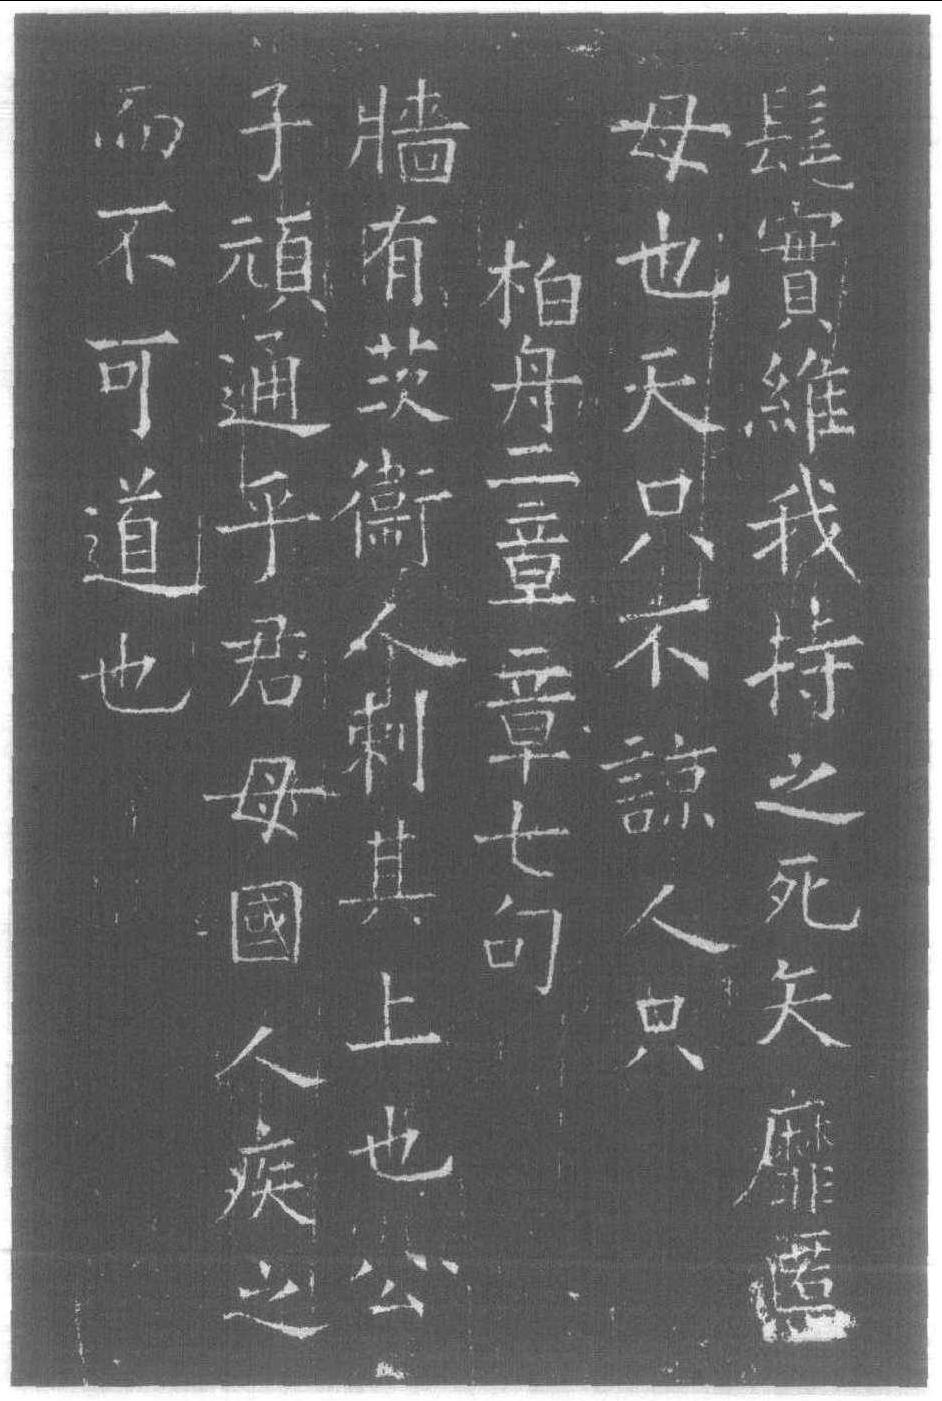 髧實維我持之死矢靡慝
母也天只不諒人只
柏舟二章章七句
牆有茨衞人刺其上也公
子頑通乎君母國人疾之
而不可道也